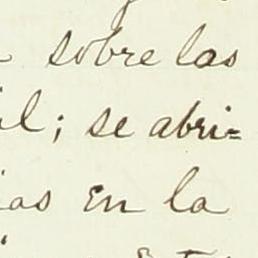 sobre las
il; se abri=
ias en la